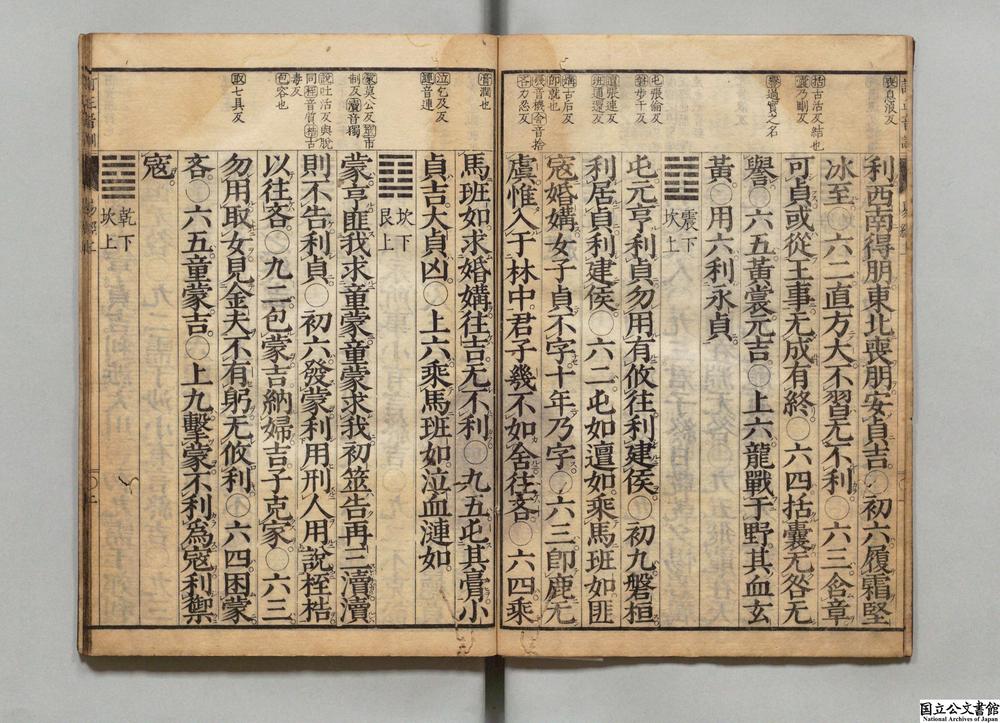 喪息浪反
括古活反結也
囊乃剛反
譽過實之名
屯張倫反
磐步干反
邅張連反
媾古后反
卽就也
幾音機舍音捨
吝力忍反
利西南得朋東北喪朋安貞吉○初六履霜堅
冰至○六二直方大不習无不利○六三含章
可貞或從王事无成有終○六四括囊无咎无
譽○六五黃裳元吉○上六龍戰于野其血玄
黃○用六利永貞
震下
坎上
屯元亨利貞勿用有攸往利建侯○初九磐桓
利居貞利建侯○六二屯如邅如乘馬班如匪
寇婚媾女子貞不字十年乃字○六三卽鹿无
虞惟入于林中君子幾不如舍往吝○六四乘
膏潤也
漣音連
蒙莫公反筮市
制反瀆音獨
說吐活反與脫
同桎音質梏古
毒反
包容也
取七具反
馬班如求婚媾往吉无不利○九五屯其膏小
貞吉大貞凶○上六乘馬班如泣血漣如
坎下
艮上
蒙亨匪我求童蒙童蒙求我初筮告再三瀆瀆
則不告利貞○初六發蒙利用刑人用說桎梏
以往吝○九二包蒙吉納婦吉子克家○六三
勿用取女見金夫不有躬无攸利○六四困蒙
吝○六五童蒙吉○上九擊蒙不利為寇利禦
寇
乾下
坎上
国立公文書館
National Archives of Japan